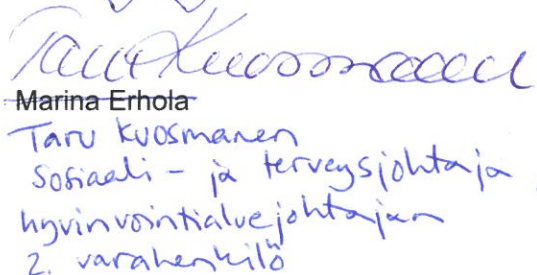 Taru Kuosmanen
Marina Erhola
Taru Kuosmanen
Sosiaali- ja terveysjohtaja
hyvinvointialuejohtajan
2. varahenkilö